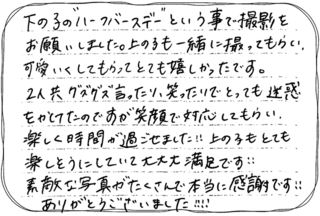 下の子の"ハーフバースデー"という事で撮影を
お願いしました。上の子も一緒に撮ってもらい、
可愛いくしてもらってとても嬉しかったです。
2人共グズグズ言ったり、笑ったりでとっても迷惑
をかけたのですが笑顔で対応してもらい、
楽しく時間が過ごせました!! 上の子もとても
楽しそうにしていて大大大満足です!!
素敵な写真がたくさんで本当に感謝です!!
ありがとうございました!!!